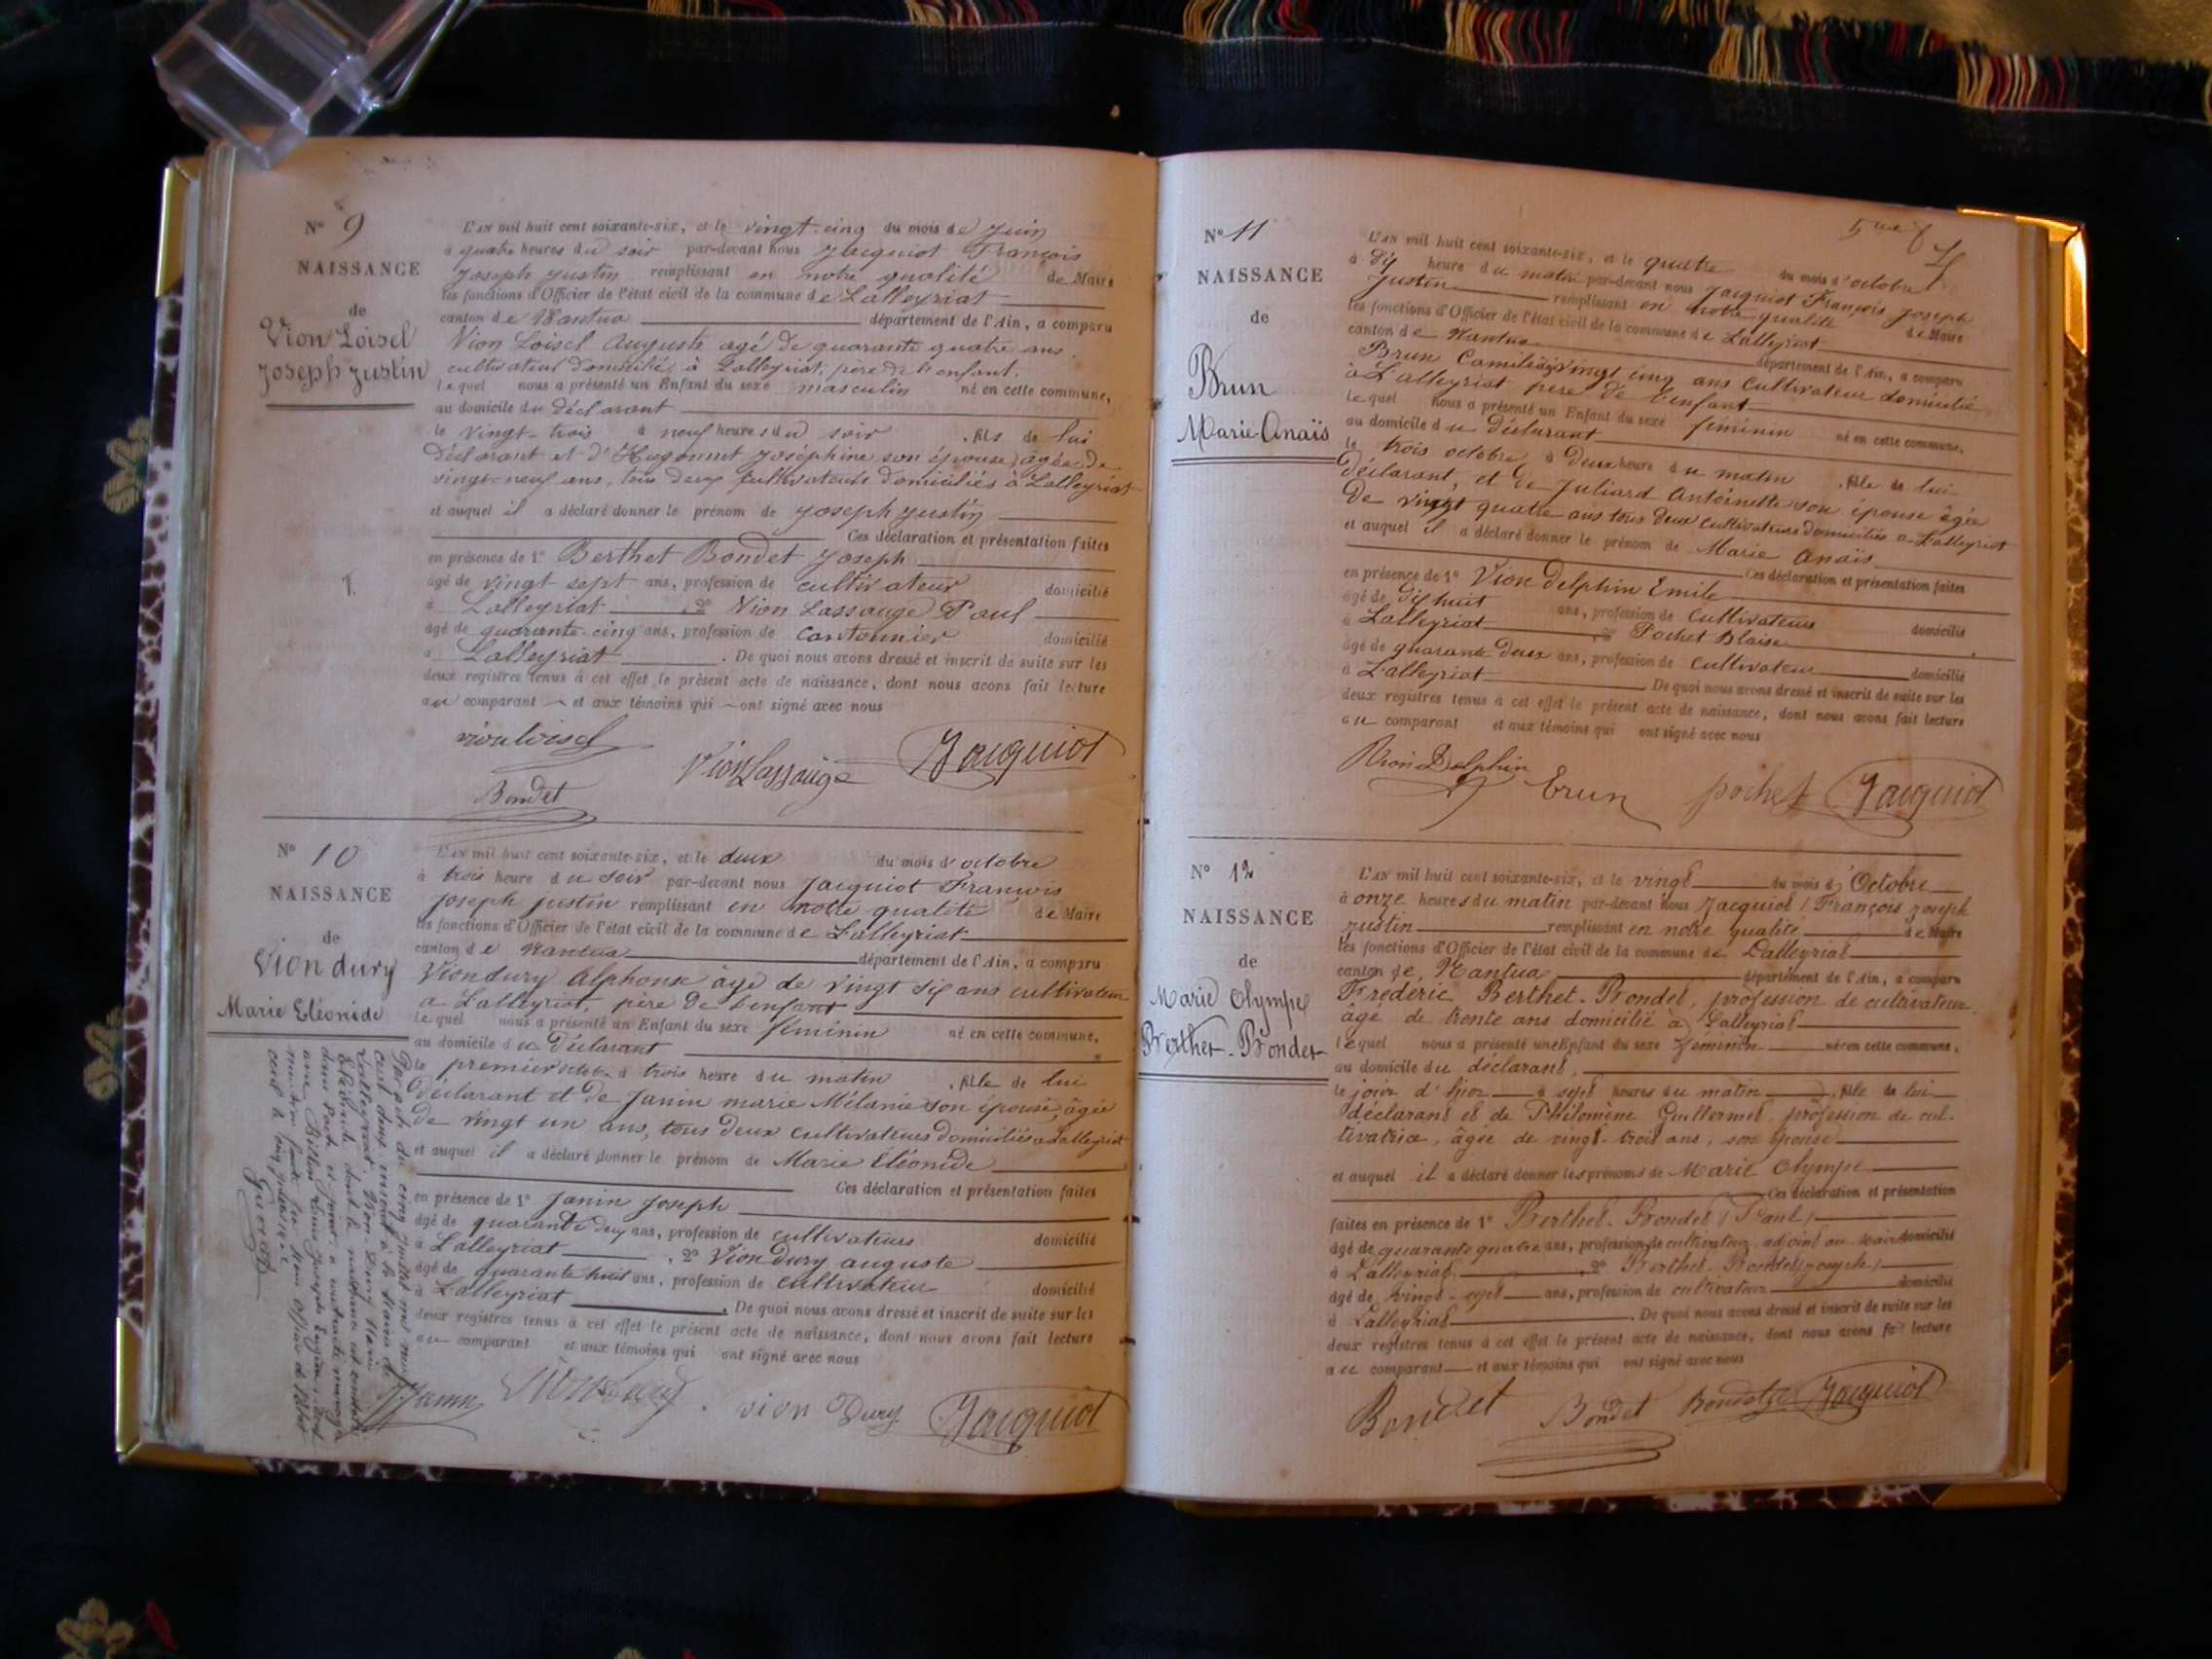 N° 9
NAISSANCE
de
Vion Loisel
Joseph Justin
L'AN mil huit cent soixante-six, et le vingt-cinq du mois de Juin
à quatre heures du soir par-devant nous Jacquiot François
Joseph Justin remplissant en notre qualité de Maire
les fonctions d'Officier de l'état civil de la commune de Lalleyriat
canton de Nantua département de l'Ain, a comparu
Vion Loisel Auguste agé de quarante quatre ans
cultivateur domicilié à Lalleyriat, père de l'enfant.
lequel nous a présenté un Enfant du sexe masculin né en cette commune,
au domicile du déclarant
le vingt-trois à neuf heures du soir , fils de lui
déclarant et d'Hugonnet Joséphine son épouse, agée de
vingt-neuf ans, tous deux cultivateurs domiciliés à Lalleyriat
et auquel il a déclaré donner le prénom de Joseph Justin
Ces déclaration et présentation faites
en présence de 1° Berthet Bondet Joseph
âgé de vingt sept ans, profession de cultivateur domicilié
à Lalleyriat , 2° Vion Lassauge Paul
âgé de quarante-cinq ans, profession de cantonnier domicilié
à Lalleyriat . De quoi nous avons dressé et inscrit de suite sur les
deux registres tenus à cet effet le présent acte de naissance, dont nous avons fait lecture
au comparant et aux témoins qui ont signé avec nous
vion loisel
Vion Lassauge
Jacquiot
Bondet
N° 10
NAISSANCE
de
Vion dury
Marie Eléonide
L'AN mil huit cent soixante-six, et le deux du mois d'octobre
à trois heure du soir par-devant nous Jacquiot François
Joseph justin remplissant en notre qualité de Maire
les fonctions d'Officier de l'état civil de la commune de Lalleyriat
canton de Nantua département de l'Ain, a comparu
Vion dury Alphonse âgé de vingt six ans cultivateur
a Lalleyriat, père de l'enfant
lequel nous a présenté un Enfant du sexe féminin né en cette commune,
au domicile du déclarant
le premier octobre à trois heure du matin , fille de lui
déclarant et de Janin marie Mélanie son épouse, âgée
de vingt un ans, tous deux cultivateurs domiciliés a Lalleyriat
et auquel il a déclaré donner le prénom de Marie Eléonide
Ces déclaration et présentation faites
en présence de 1° Janin Joseph
âgé de quarante deux ans, profession de cultivateurs domicilié
à Lalleyriat , 2° Vion dury auguste
âgé de quarante huit ans, profession de cultivateur domicilié
à Lalleyriat . De quoi nous avons dressé et inscrit de suite sur les
deux registres tenus à cet effet le présent acte de naissance, dont nous avons fait lecture
au comparant et aux témoins qui ont signé avec nous
Janin
vion Dury
Jacquiot
N° 11
NAISSANCE
de
Brun
Marie Anaïs
L'AN mil huit cent soixante-six, et le quatre du mois d'octobre
à dix heure du matin par-devant nous Jacquiot François Joseph
Justin remplissant en notre qualité de Maire
les fonctions d'Officier de l'état civil de la commune de Lalleyriat
canton de Nantua département de l'Ain, a comparu
Brun Camille vingt cinq ans cultivateur domicilié
à Lalleyriat père de l'enfant
lequel nous a présenté un Enfant du sexe féminin né en cette commune,
au domicile du déclarant
le trois octobre à deux heure du matin , fille de lui
déclarant, et de Juliard Antoinette son épouse âgée
de vingt quatre ans tous deux cultivateurs domiciliés a Lalleyriat
et auquel il a déclaré donner le prénom de Marie Anaïs
Ces déclaration et présentation faites
en présence de 1° Vion delphin Emile
âgé de dix huit ans, profession de cultivateurs domicilié
à Lalleyriat , 2° Pochet Blaise
âgé de quarante deux ans, profession de cultivateur domicilié
à Lalleyriat . De quoi nous avons dressé et inscrit de suite sur les
deux registres tenus à cet effet le présent acte de naissance, dont nous avons fait lecture
au comparant et aux témoins qui ont signé avec nous
Vion Delphin
Brun
pochet
Jacquiot
N° 12
NAISSANCE
de
Marie Olympe
Berthet-Bondet
L'AN mil huit cent soixante-six, et le vingt du mois d'Octobre
à onze heures du matin par-devant nous Jacquiot François Joseph
Justin remplissant en notre qualité de Maire
les fonctions d'Officier de l'état civil de la commune de Lalleyriat
canton de Nantua département de l'Ain, a comparu
Frédéric Berthet-Bondet, profession de cultivateur
âgé de trente ans domicilié à Lalleyriat
lequel nous a présenté une Enfant du sexe féminin née en cette commune,
au domicile du déclarant,
le jour d'hier à sept heures du matin , fille de lui
déclarant et de Philomène Guillermet, profession de cul-
tivatrice, âgée de vingt-trois ans, son épouse
et auquel il a déclaré donner les prénoms de Marie Olympe
Ces déclaration et présentation
faites en présence de 1° Berthet-Bondet (Paul)
âgé de quarante quatre ans, profession de cultivateur, adjoint au maire domicilié
à Lalleyriat , 2° Berthet-Bondet (Joseph)
âgé de vingt-sept ans, profession de cultivateur domicilié
à Lalleyriat . De quoi nous avons dressé et inscrit de suite sur les
deux registres tenus à cet effet le présent acte de naissance, dont nous avons fait lecture
au comparant et aux témoins qui ont signé avec nous
Bondet
Bondet
Jacquiot